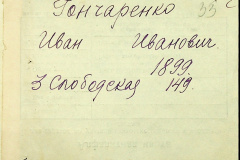 Гончаренко 33
Иван Иванович
1899.
3 Слободская 149.